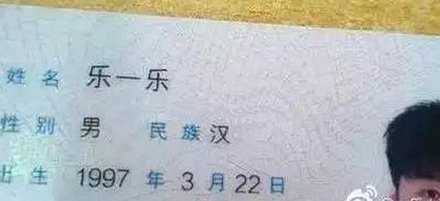 姓名 乐一乐
性别 男 民族 汉
出生 1997 年 3 月 22 日